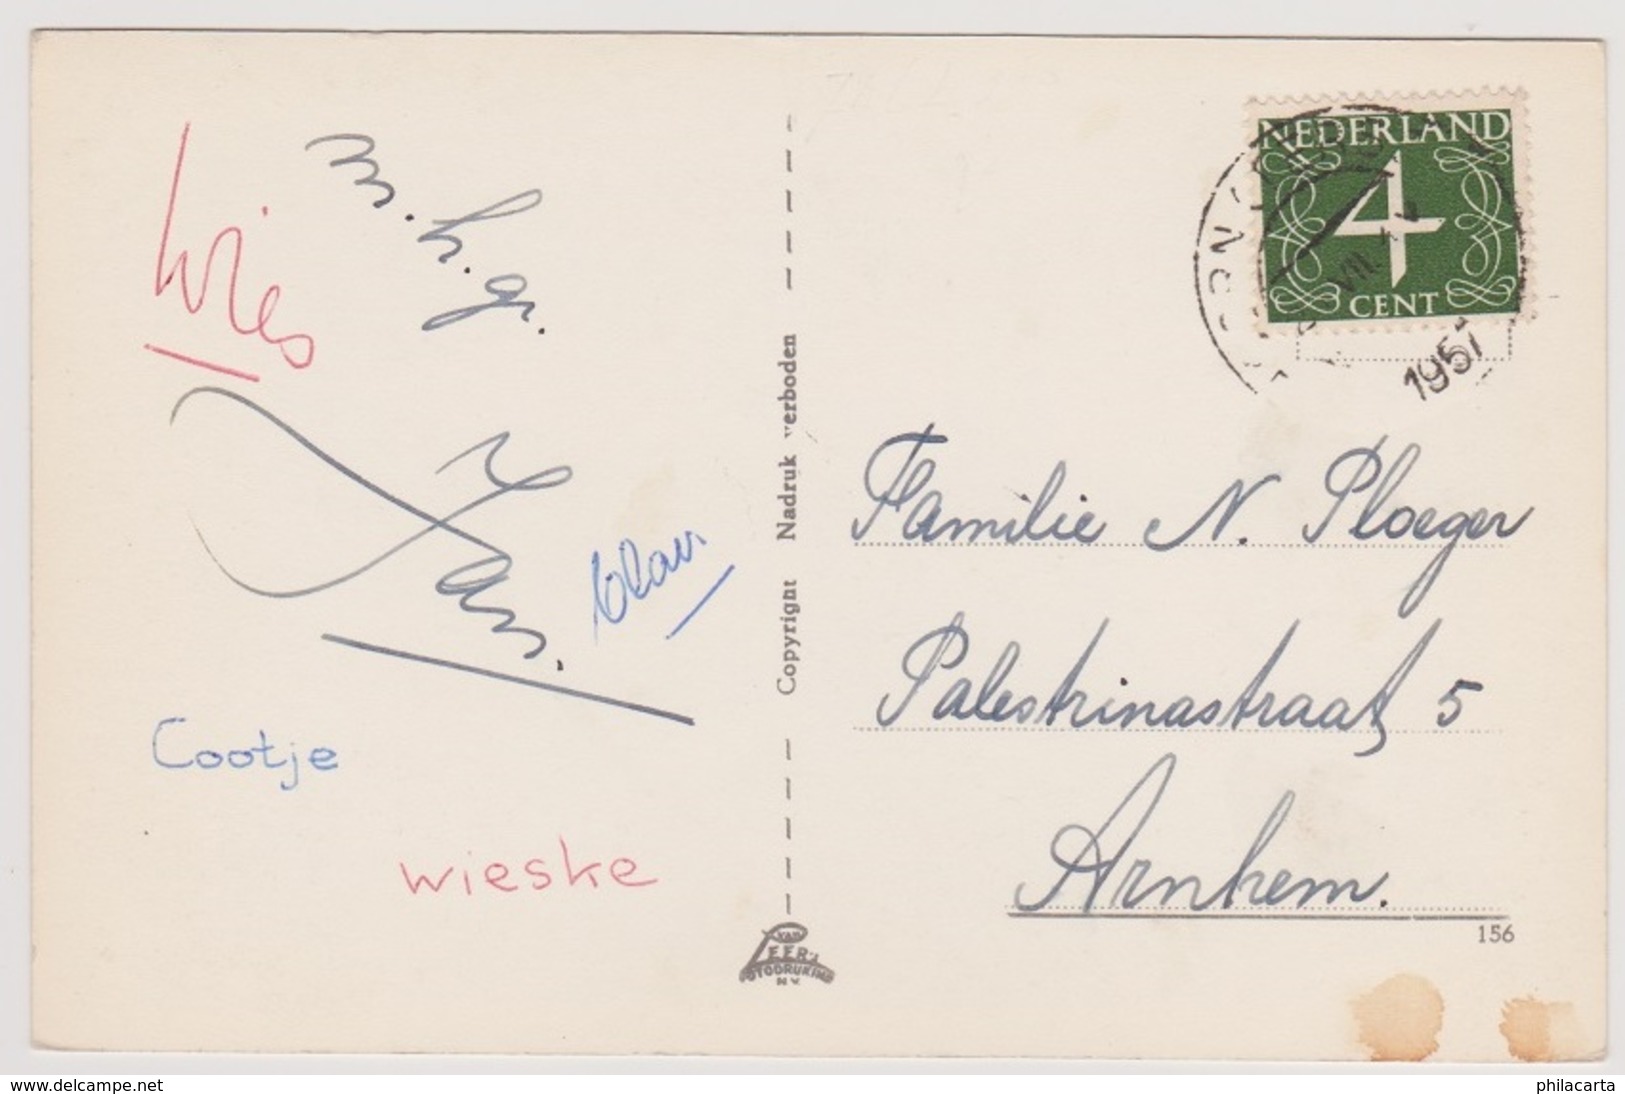 m. h. gr.
Wies
Jan.
Cootje
wieske
Copyright Nadruk verboden
VAN LEER'S
FOTODRUKIND
N.V.
NEDERLAND
4
CENT
VII.
1957
Familie N. Ploeger
Palestrinastraat 5
Arnhem.
156
www.delcampe.net
philacarta